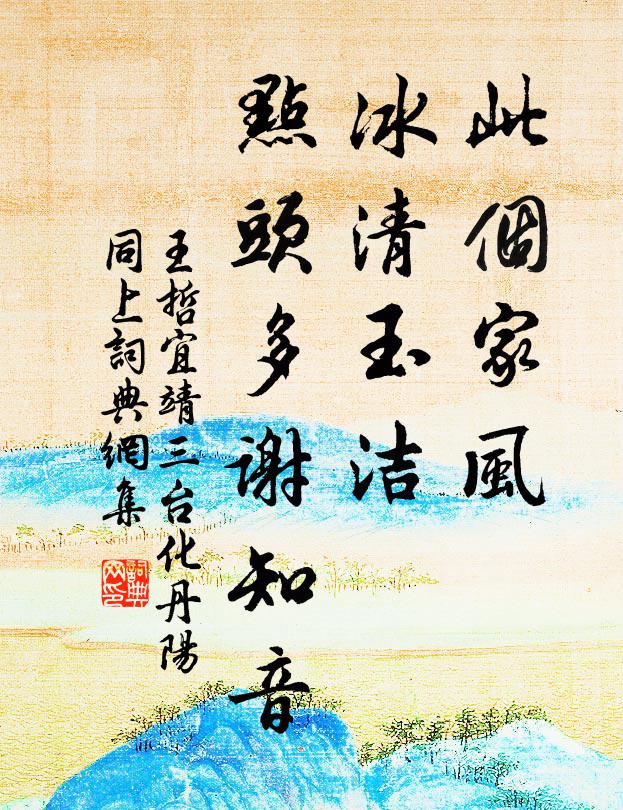 此個家風
冰清玉洁
點頭多謝知音
王哲宜靖三台化丹陽
同上詞典網集
詞典网印